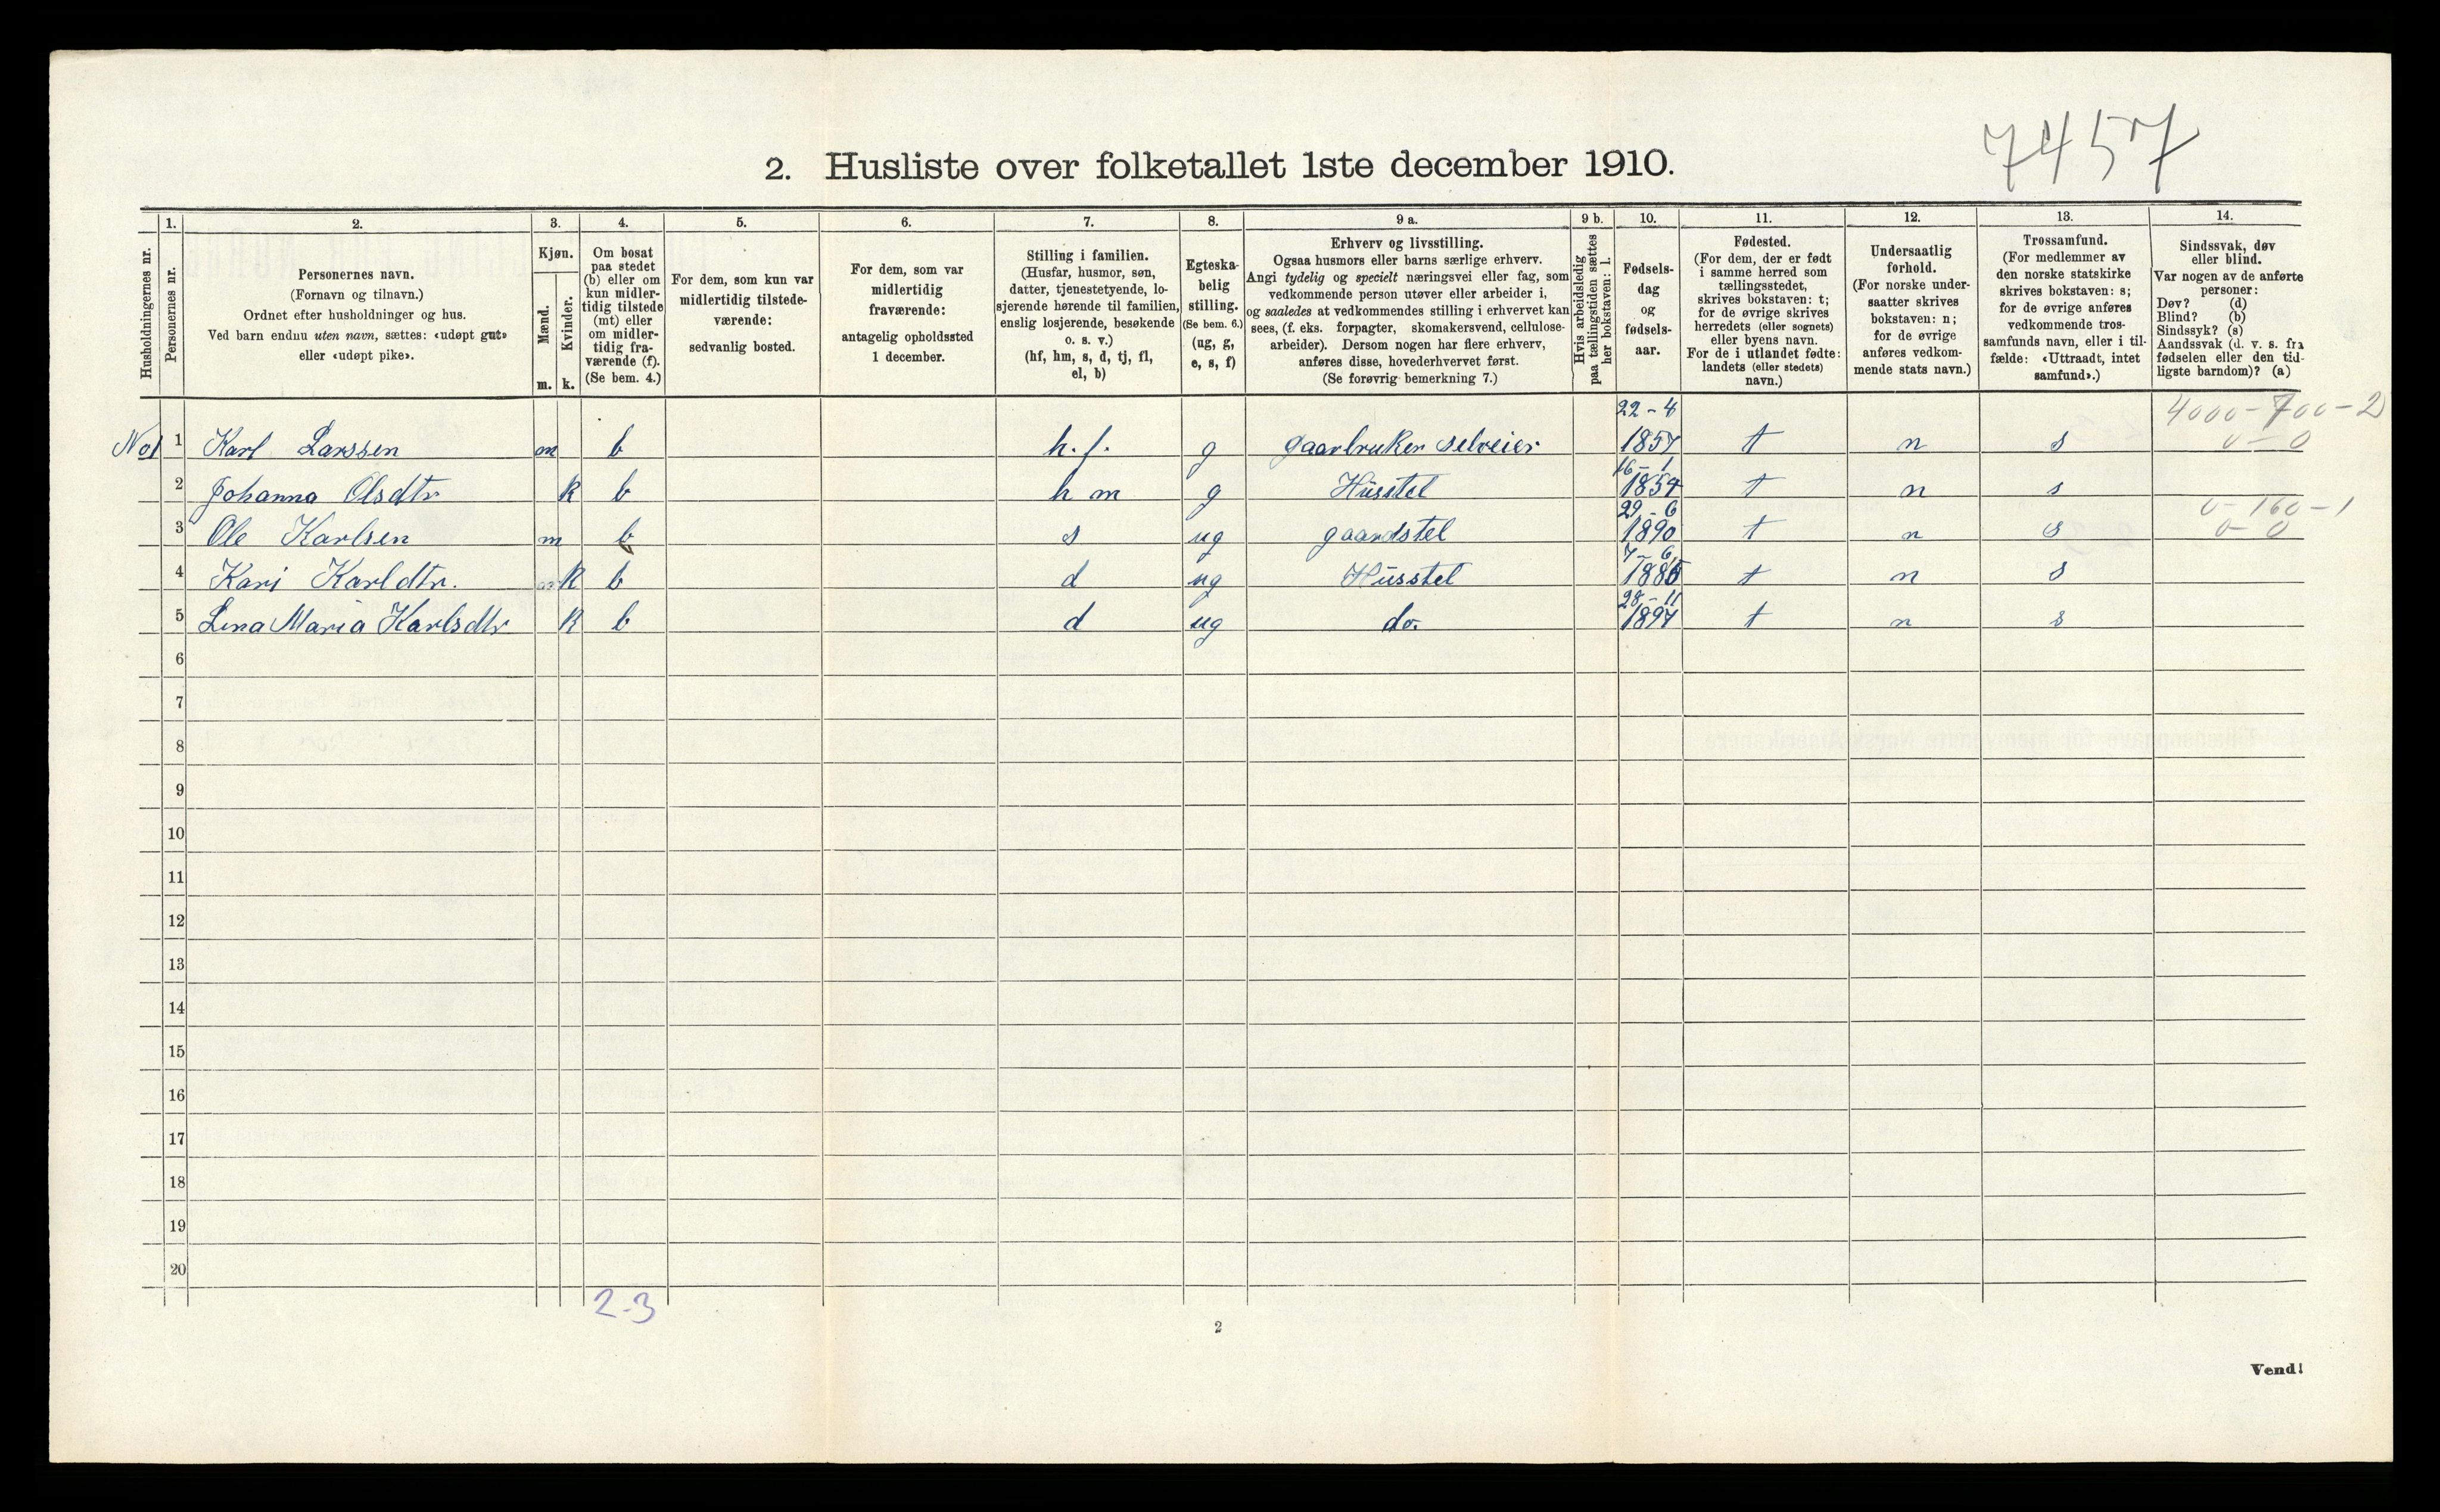 7457
2. Husliste over folketallet 1ste december 1910.
Husholdningernes nr.
1.
Personernes nr.
2.
Personernes navn.
(Fornavn og tilnavn.)
Ordnet efter husholdninger og hus.
Ved barn endnu uten navn, sættes: «udøpt gut»
eller «udøpt pike».
3.
Kjøn.
Mænd.
Kvinder.
m. k.
4.
Om bosat
paa stedet
(b) eller om
kun midler-
tidig tilstede
(mt) eller
om midler-
tidig fra-
værende (f).
(Se bem. 4.)
5.
For dem, som kun var
midlertidig tilstede-
værende:
sedvanlig bosted.
6.
For dem, som var
midlertidig
fraværende:
antagelig opholdssted
1 december.
7.
Stilling i familien.
(Husfar, husmor, søn,
datter, tjenestetyende, lo-
sjerende hørende til familien,
enslig losjerende, besøkende
o. s. v.)
(hf, hm, s, d, tj, fl,
el, b)
8.
Egteska-
belig
stilling.
(Se bem. 6.)
(ug, g,
e, s, f)
9 a.
Erhverv og livsstilling.
Ogsaa husmors eller barns særlige erhverv.
Angi tydelig og specielt næringsvei eller fag, som
vedkommende person utøver eller arbeider i,
og saaledes at vedkommendes stilling i erhvervet kan
sees, (f. eks. forpagter, skomakersvend, cellulose-
arbeider). Dersom nogen har flere erhverv,
anføres disse, hovederhvervet først.
(Se forøvrig bemerkning 7.)
9 b.
Hvis arbeidsledig
paa tællingstiden sættes
her bokstaven: l.
10.
Fødsels-
dag
og
fødsels-
aar.
11.
Fødested.
(For dem, der er født
i samme herred som
tællingsstedet,
skrives bokstaven: t;
for de øvrige skrives
herredets (eller sognets)
eller byens navn.
For de i utlandet fødte:
landets (eller stedets)
navn.)
12.
Undersaatlig
forhold.
(For norske under-
saatter skrives
bokstaven: n;
for de øvrige
anføres vedkom-
mende stats navn.)
13.
Trossamfund.
(For medlemmer av
den norske statskirke
skrives bokstaven: s;
for de øvrige anføres
vedkommende tros-
samfunds navn, eller i til-
fælde: «Uttraadt, intet
samfund».)
14.
Sindssvak, døv
eller blind.
Var nogen av de anførte
personer:
Døv? (d)
Blind? (b)
Sindssyk? (s)
Aandssvak (d. v. s. fra
fødselen eller den tid-
ligste barndom)? (a)
22-4 4000-700-2
No1 1 Karl Larssen m b h.f. g gaarbruker selveier 1857 t n s 0-0
16-1
2 Johanna Olsdtr k b h m g Husstel 1854 t n s
29-6 0-160-1
3 Ole Karlsen m b s ug gaardstel 1890 t n s 0-0
7-6
4 Kari Karldtr. k b d ug Husstel t n s
28-11
5 Lina Maria Karlsdtr k b d ug do. 1897 t n s
6
7
8
9
10
11
12
13
14
15
16
17
18
19
20
2-3
2
Vend!